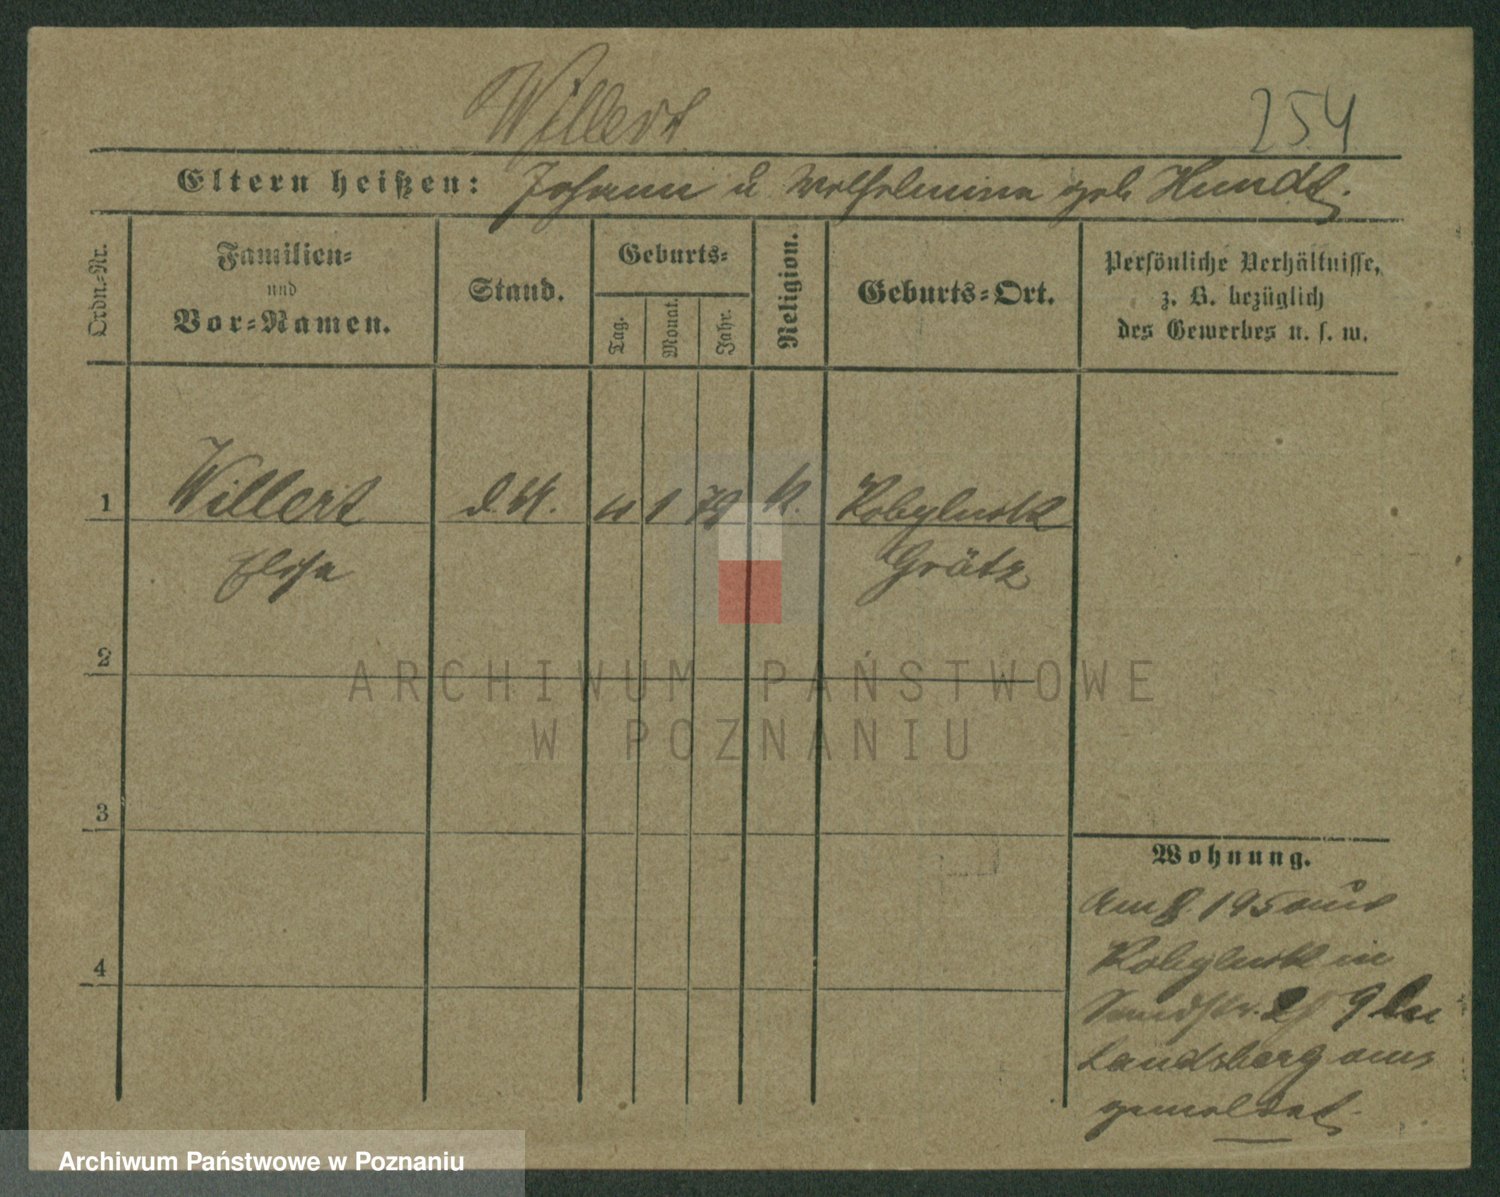 Willert
254
Eltern heißen: Johann u Wilhelmina geb Hundt.
Ordn.-Nr.
Familien-
und
Vor-Namen.
Stand.
Geburts-
Tag.
Monat.
Jahr.
Religion.
Geburts-Ort.
Persönliche Verhältnisse,
z. B. bezüglich
des Gewerbes u. s. w.
1
Willert
1
k.
Kobylnik
Elise
Grätz
2
ARCHIWUM PAŃSTWOWE
W POZNANIU
3
Wohnung.
Am 8. 1 95 aus
4
Kobylnik in
9 bei
Landsberg an
gemeldet.
Archiwum Państwowe w Poznaniu